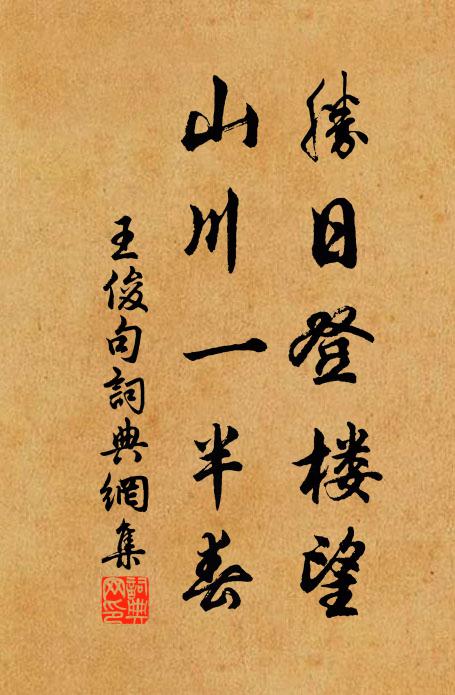 勝日登楼望
山川一半春
王俊句詞典網集
詞典网印